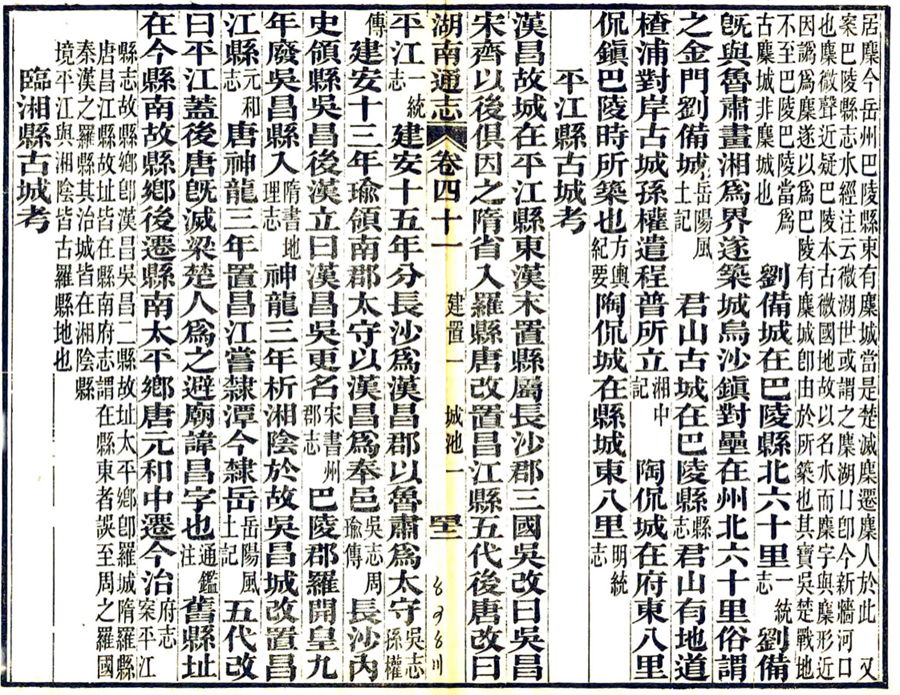 居麋今岳州巴陵縣東有麋城當是楚滅麇遷麇人於此 又
案巴陵縣志水經注云微湖世或謂之麋湖口卽今新牆河口
也麋微聲近疑巴陵本古微國地故以名水而麇字與麋形近
因譌爲麋遂以爲巴陵有麋城卽由於所築也其實吳楚戰地
不至巴陵巴陵當爲古麋城非麇城也 劉備城在巴陵縣北六十里一統志 劉備
旣與魯肅畫湘爲界遂築城烏沙鎭對壘在州北六十里俗謂
之金門劉備城岳陽風土記 君山古城在巴陵縣縣志君山有地道
楂浦對岸古城孫權遣程普所立湘中記 陶侃城在府東八里
侃鎭巴陵時所築也方輿紀要陶侃城在縣城東八里明統志
平江縣古城考
漢昌故城在平江縣東漢末置縣屬長沙郡三國吳改曰吳昌
宋齊以後俱因之隋省入羅縣唐改置昌江縣五代後唐改曰
湖南通志 卷四十一 建置一 城池一
平江一統志 建安十五年分長沙爲漢昌郡以魯肅爲太守吳志孫權
傳 建安十三年瑜領南郡太守以漢昌爲奉邑吳志周瑜傳 長沙內
史領縣吳昌後漢立曰漢昌吳更名宋書州郡志 巴陵郡羅開皇九
年廢吳昌縣入隋書地理志 神龍三年析湘陰於故吳昌城改置昌
江縣元和志 唐神龍三年置昌江嘗隷潭今隷岳岳陽風土記 五代改
曰平江蓋後唐旣滅梁楚人爲之避廟諱昌字也通鑑注 舊縣址
在今縣南故縣鄉後遷縣南太平鄉唐元和中遷今治府志 案平江
縣志故縣鄉卽漢昌吳昌二縣故址太平鄉卽羅城隋羅縣
唐昌江縣故址皆在縣南府志謂在縣東者誤至周之羅國
秦漢之羅縣其治城皆在湘陰縣
境平江與湘陰皆古羅縣地也
臨湘縣古城考